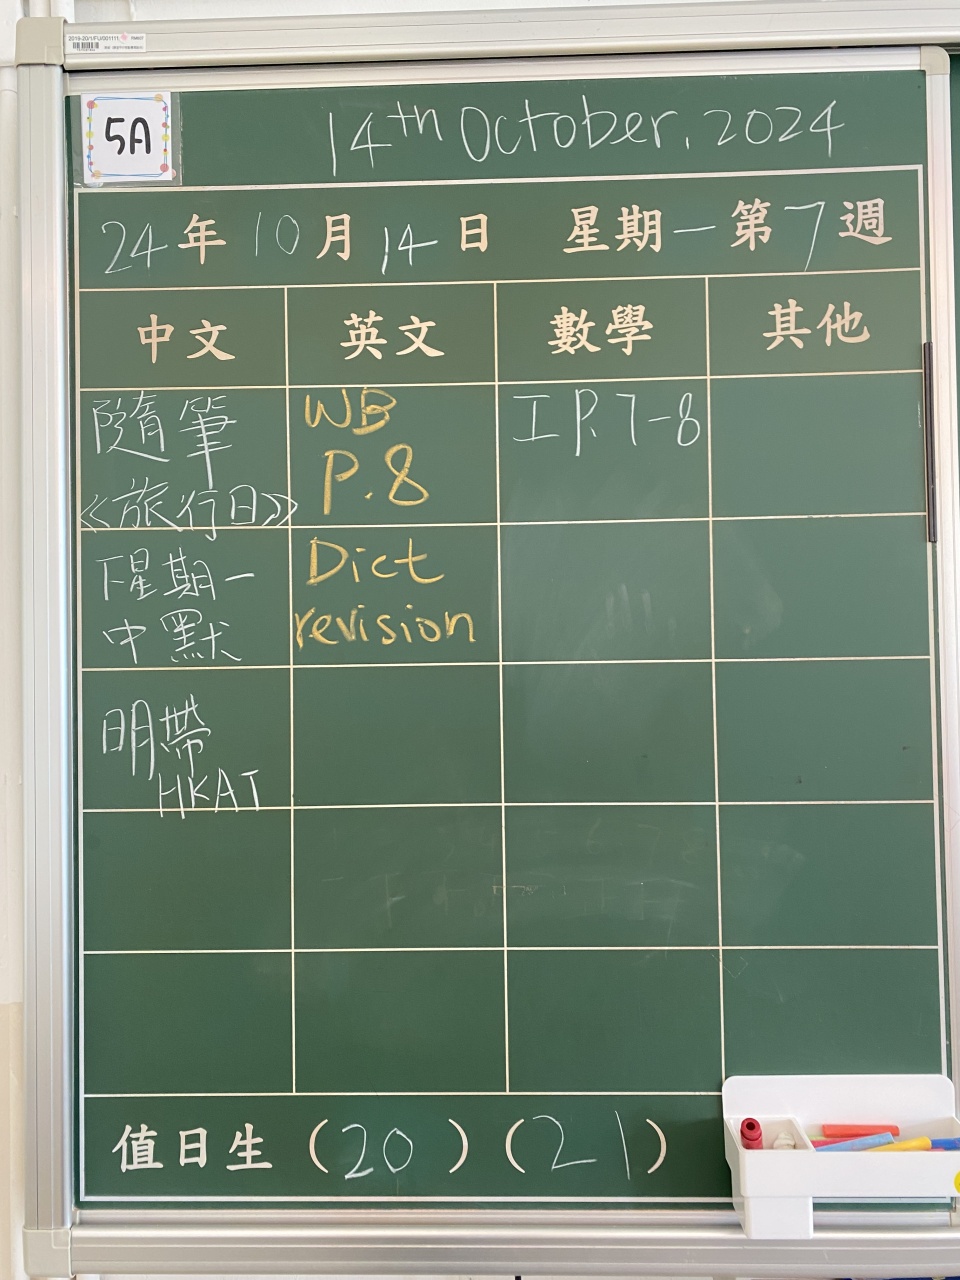 5A
14th October, 2024
24年10月14日 星期一 第7週
中文 英文 數學 其他
隨筆
《旅行日》
WB
P.8
工P.7-8
下星期一
中默
Dict
revision
明帶
HKAT
值日生（20）（21）